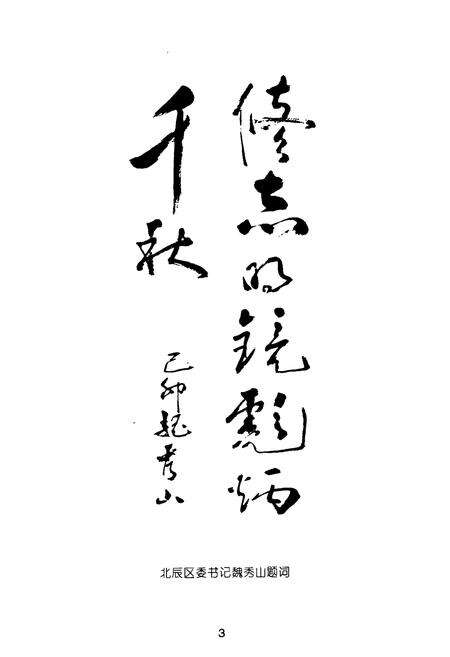 修志明镜彪炳
千秋
己卯魏秀山
北辰区委书记魏秀山题词
3